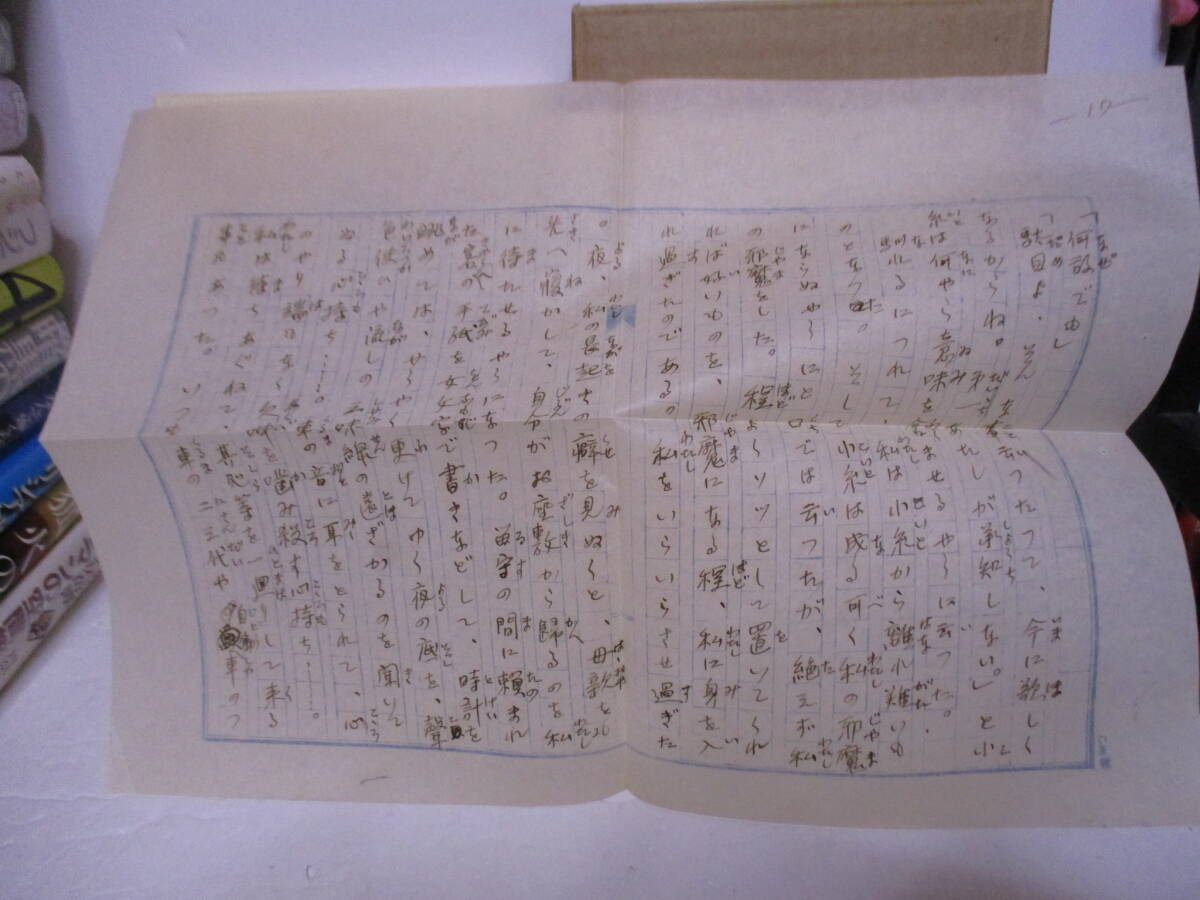 17
「何故でゆ」
「駄目よ、そんな云つたつて、今に欲しく
なるからね。あたしが承知しない。」と小
糸は何やら意味を含ませるやうに云つた。
馴れるにつれて、私は小糸から離れ難いも
のとなつた。そして小糸は成る可く私の邪魔
にならぬやうにと口では云つたが、絶えず私
の邪魔をした。程よくソツとして置いてくれ
れば好いものを、邪魔になる程、私に身を入
れ過ぎたのである。私をいらいらさせ過ぎた
。夜、私の長起きの癖を見ぬくと、母親を
先へ寝かして、自分がお座敷から帰るのを私
に待たせるやうになつた。留守の間に頼まれ
た客の手紙を女文字で書きなどして、時計を
眺めては、やうやく更けてゆく夜の底を、聲
色使や流しの三味線の遠ざかるのを聞いて
ゐる心持ち……車の音に耳をとられて、心
のやり端のなく欠伸を噛み殺す心持ち……。
私は待ちあぐねて、其処等を一廻りして来る
事もあつた。いつも車の二三代や自動車のつ